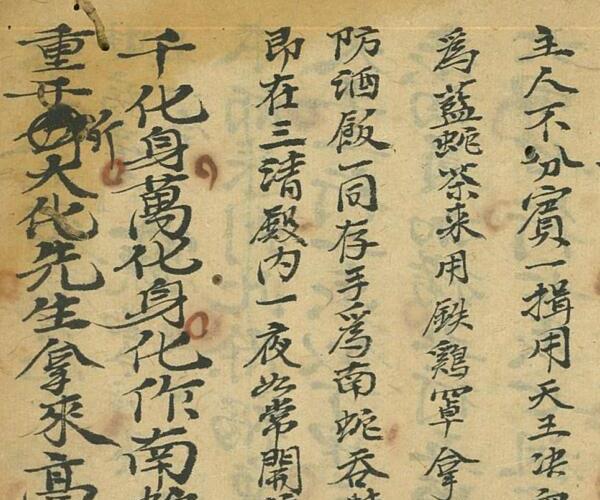 主人不分賓一揖用天王决
為藍蛇茶来用鉄鷄罩拿
防酒飯一同存手為南蛇吞
即在三清殿内一夜如常開
千化身萬化身化作南蛇
重 所大化先生拿來高